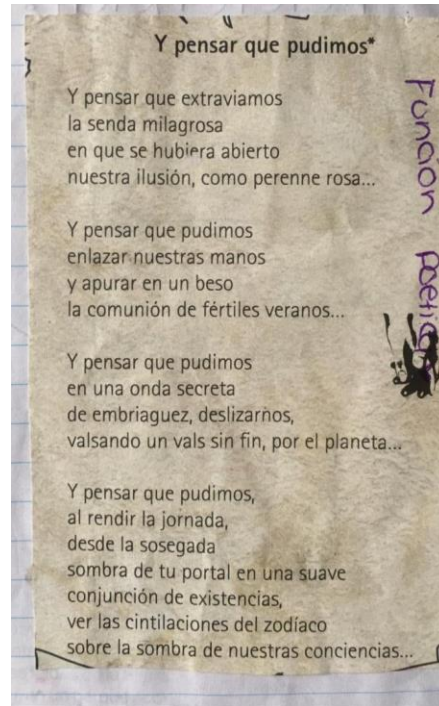 Y pensar que pudimos*
Y pensar que extraviamos
la senda milagrosa
en que se hubiera abierto
nuestra ilusión, como perenne rosa...
Y pensar que pudimos
enlazar nuestras manos
y apurar en un beso
la comunión de fértiles veranos...
Y pensar que pudimos
en una onda secreta
de embriaguez, deslizarnos,
valsando un vals sin fin, por el planeta...
Y pensar que pudimos,
al rendir la jornada,
desde la sosegada
sombra de tu portal en una suave
conjunción de existencias,
ver las cintilaciones del zodíaco
sobre la sombra de nuestras conciencias...
Funcion poetica